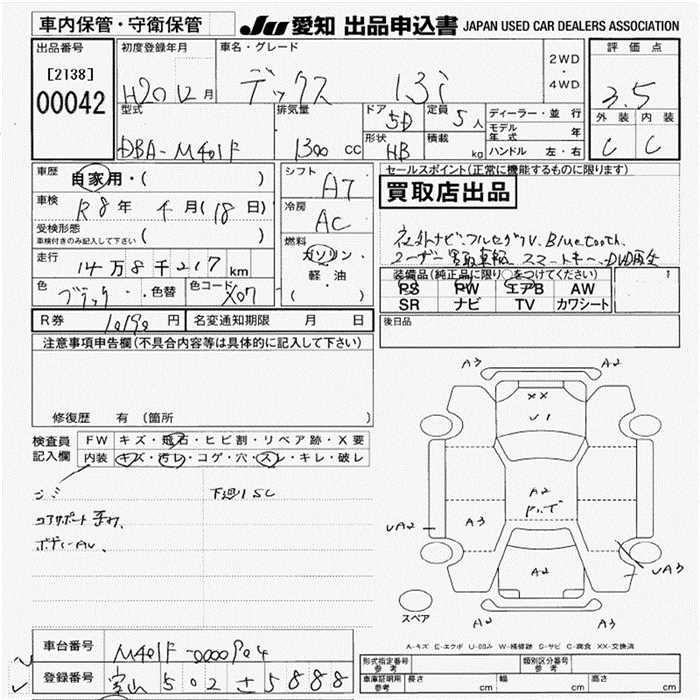 車内保管・守衛保管
JU 愛知 出品申込書 JAPAN USED CAR DEALERS ASSOCIATION
出品番号
[2138]
00042
初度登録年月
H20年12月
車名・グレード
デックス 1.3i
2WD
・
4WD
評価点
3.5
外装 内装
C C
型式
DBA-M401F
排気量
1300 cc
ドア
5D
形状
HB
定員
5人
積載
kg
ディーラー・並行
モデル年式 年
ハンドル 左・右
車歴
自家用・( )
車検
R8年4月(18日)
受検形態
車検付きのみ記入して下さい ( )
走行
14万8千217km
色
ブラック
・色替
色コード
X07
シフト
A7
冷房
AC
燃料
ガソリン・
軽・油
( )
セールスポイント(正常に機能するものに限ります)
買取店出品
社外ナビ・フルセグTV、Bluetooth、
ユーザー買取車輌 スマートキー、DVD再生
装備品(純正品に限り○をつけてください)
PS PW エアB AW
SR ナビ TV カワシート
後日品
R券 円
名変通知期限 月 日
注意事項申告欄(不具合内容等は具体的に記入して下さい)
修復歴 有 (箇所 )
検査員
記入欄
FW キズ・飛石・ヒビ割・リペア跡・X要
内装 キズ・汚レ・コゲ・穴・スレ・キレ・破レ
シミ
下廻りSC
コアサポート
A3 A2
XX
U1
A2
A3
UA2
UA3
A2
A2 A3
スペア
A-キズ E-エクボ U-凹み W-補修跡 S-サビ C-腐食 XX-交換済
車台番号
M401F-0000904
登録番号
富山 502 さ 5888
形式指定番号
参考
類別区分番号
参考
車庫証明用
参考
長さ cm
幅 cm
高さ cm